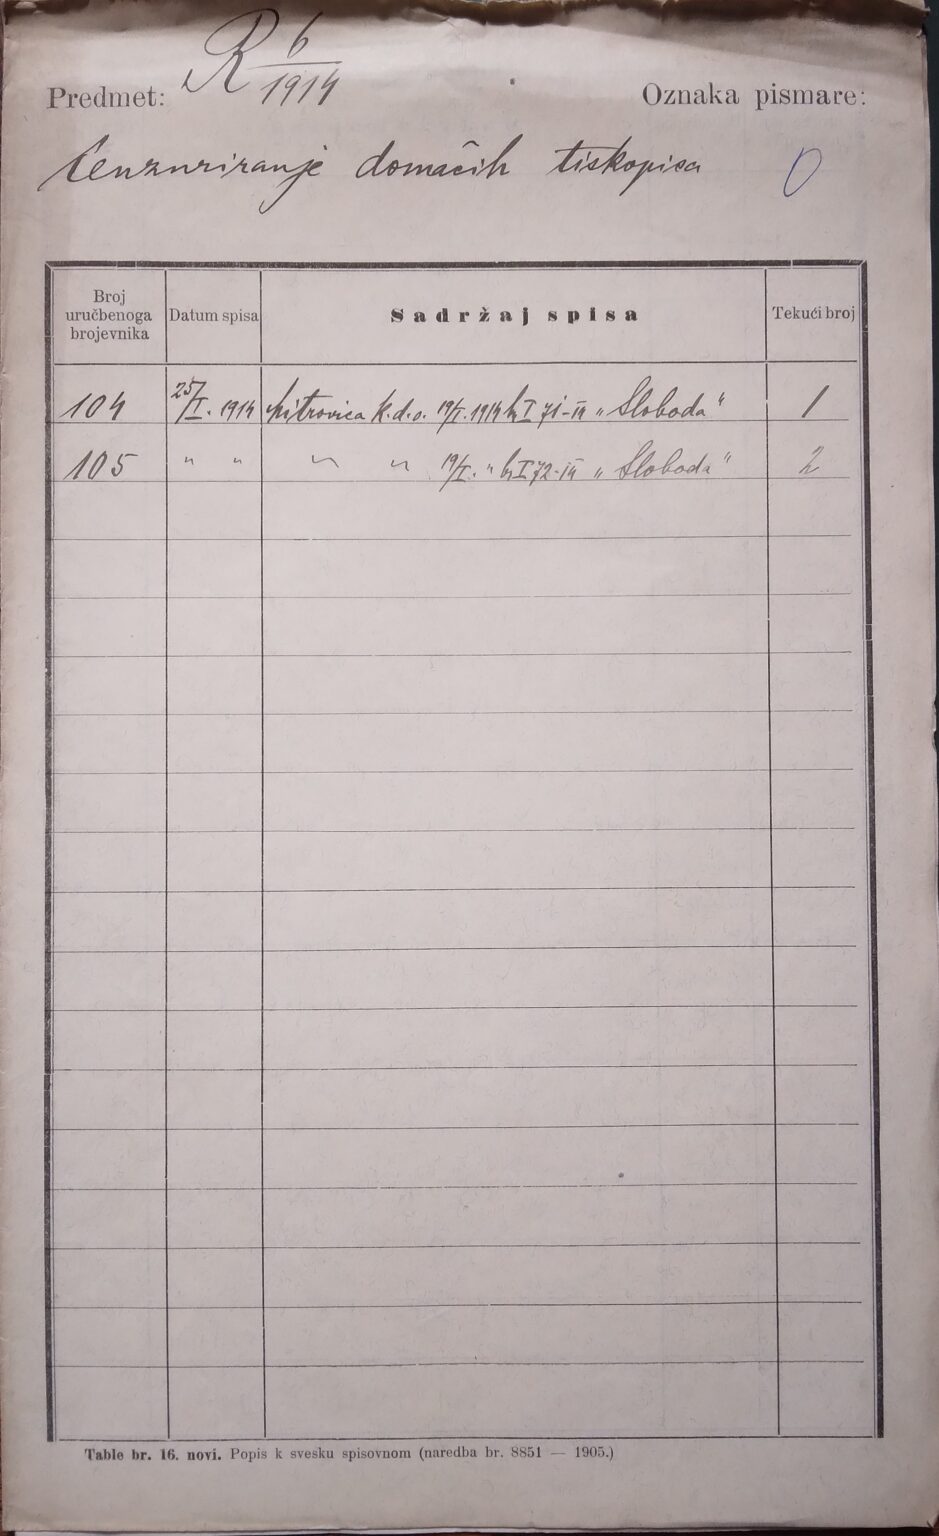 R 6/1914
Predmet: Oznaka pismare:
Cenzuriranje domaćih tiskopisa O
Broj uručbenoga brojevnika Datum spisa Sadržaj spisa Tekući broj
104 25/I. 1914 Mitrovica k.d.o. 19/I. 1914 br I 71-14 „Sloboda“ 1
105 " " " " 19/I. " br I 72-14 „Sloboda“ 2
Table br. 16. novi. Popis k svesku spisovnom (naredba br. 8851 — 1905.)